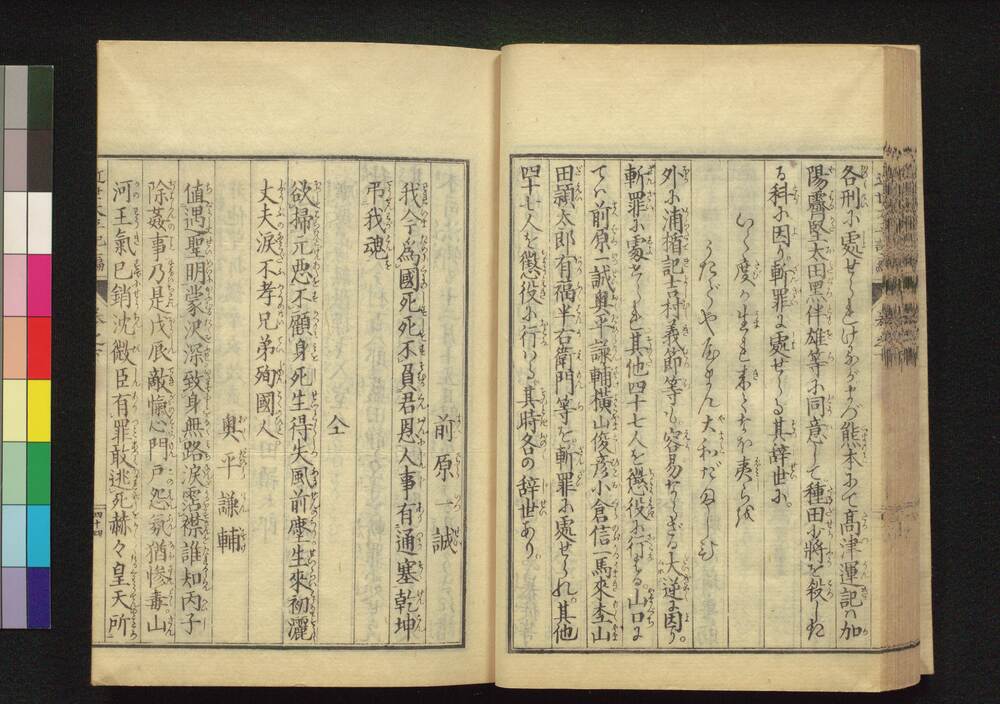 各刑に處せられけるながら熊本にて髙津運記ハ加
陽霽堅太田黒伴雄等に同意して種田少將を殺したる
る科に因り斬罪に處せらる其辞世に
いく度か生れ来てもなほ夷らを
大和だましひ
外に浦楯記吉村義節等も容易ならざる大逆に因り。
斬罪に處せられ其他四十七人を懲役に行はる山口に
てハ前原一誠奥平謙輔横山俊彦小倉信一馬來杢山
田頴太郎有福半右衛門等を斬罪に處せられ。其他
四十七人を懲役に行はる其時各の辞世あり
前原一誠
我今爲國死死不負君恩人事有通塞乾坤
弔我魂
仝
欲掃元惡不顧身死生得失風前塵生來初灑
丈夫淚不孝兄弟殉國人
奥平謙輔
値遇聖明蒙沢深致身無路淚霑襟誰知丙子
除姦事乃是戊辰敵愾心門戸怨氛猶惨毒山
河王氣已銷沈微臣有罪敢逃死赫々皇天所
四十四